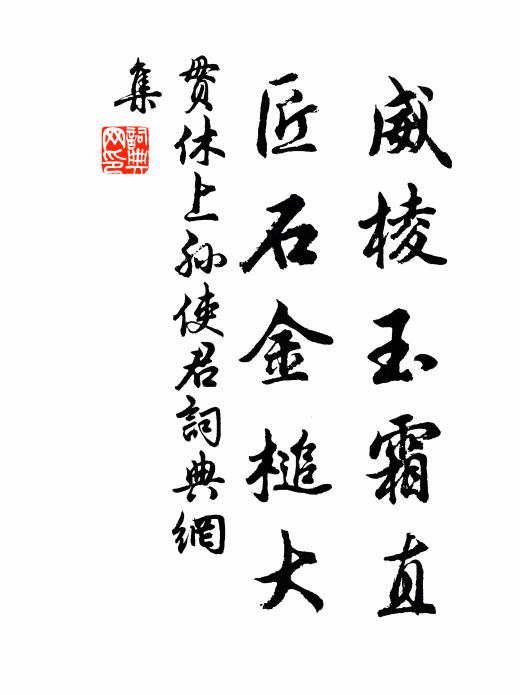 威棱玉霜直
匠石金槌大
贯休上孙使君词典網
集
詞典
网印